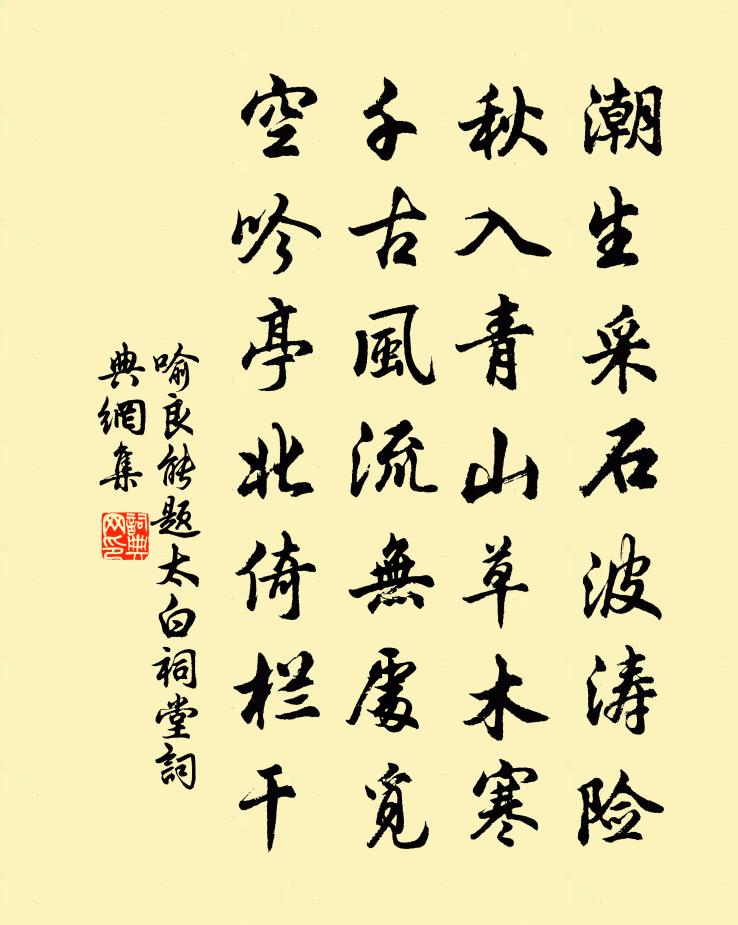 潮生采石波涛险
秋入青山草木寒
千古風流無處覓
空吟亭北倚栏干
喻良能题太白祠堂詞
典網集
詞典
网印